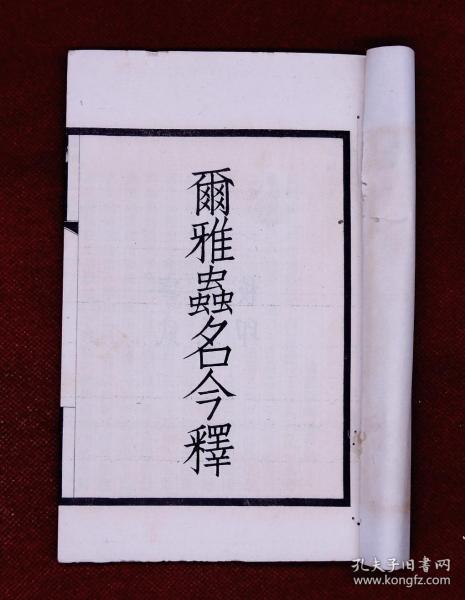 爾雅蟲名今釋
孔夫子旧书网
www.kongfz.com